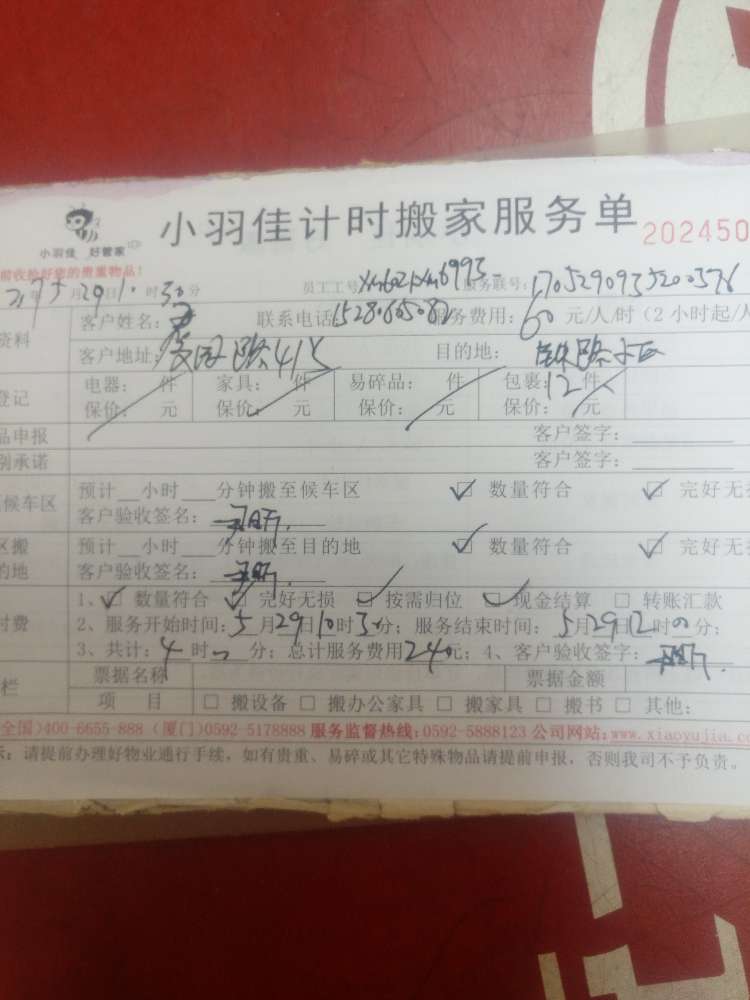 小羽佳 好管家
小羽佳计时搬家服务单 202450
前收拾好您的贵重物品!
年5月29日10时30分 员工工号 服务联号:
资料 客户姓名: 联系电话 服务费用:60元/人/时(2小时起/人
客户地址: 路415 目的地: 路
登记 电器: 件 家具: 件 易碎品: 件 包裹:12件
保价: 元 保价: 元 保价: 元 保价: 元
品申报 客户签字:
别承诺 客户签字:
候车区 预计__小时___分钟搬至候车区 ☑ 数量符合 ☑ 完好无损
客户验收签名:
区搬 预计__小时___分钟搬至目的地 ☑ 数量符合 ☑ 完好无损
的地 客户验收签名:
1、☑ 数量符合 ☑ 完好无损 ☑ 按需归位 ☑ 现金结算 □ 转账汇款
时费 2、服务开始时间:5月29日10时30分; 服务结束时间: 5月29日12时00分;
3、共计:4时 分; 总计服务费用240元; 4、客户验收签字:
栏 票据名称 票据金额
项 目 □ 搬设备 □ 搬办公家具 □ 搬家具 □ 搬书 □ 其他:
全国)400-6655-888 (厦门)0592-5178888 服务监督热线:0592-5888123 公司网站:www.xiaoyujia.c
示: 请提前办理好物业通行手续, 如有贵重、易碎或其它特殊物品请提前申报, 否则我司不予负责。